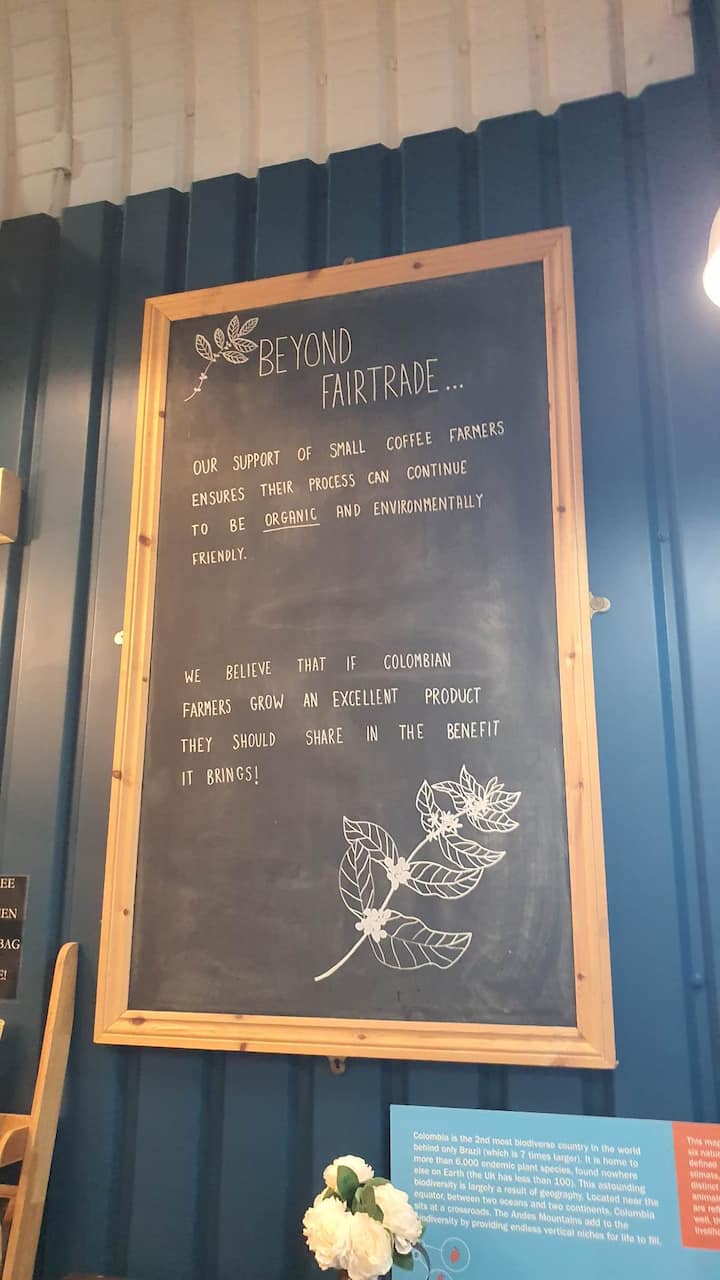 BEYOND
FAIRTRADE...
OUR SUPPORT OF SMALL COFFEE FARMERS
ENSURES THEIR PROCESS CAN CONTINUE
TO BE ORGANIC AND ENVIRONMENTALLY
FRIENDLY.
WE BELIEVE THAT IF COLOMBIAN
FARMERS GROW AN EXCELLENT PRODUCT
THEY SHOULD SHARE IN THE BENEFIT
IT BRINGS!
EE
EN
BAG
E!
Colombia is the 2nd most biodiverse country in the world
behind only Brazil (which is 7 times larger). It is home to
more than 6,000 endemic plant species, found nowhere
else on Earth (the UK has less than 100). This astounding
biodiversity is largely a result of geography. Located near the
equator, between two oceans and two continents, Columbia
sits at a crossroads. The Andes Mountains add to the
biodiversity by providing endless vertical niches for life to fill.
This map
six natur
defined
climate,
distinct
animals
are refl
well, th
liveliho